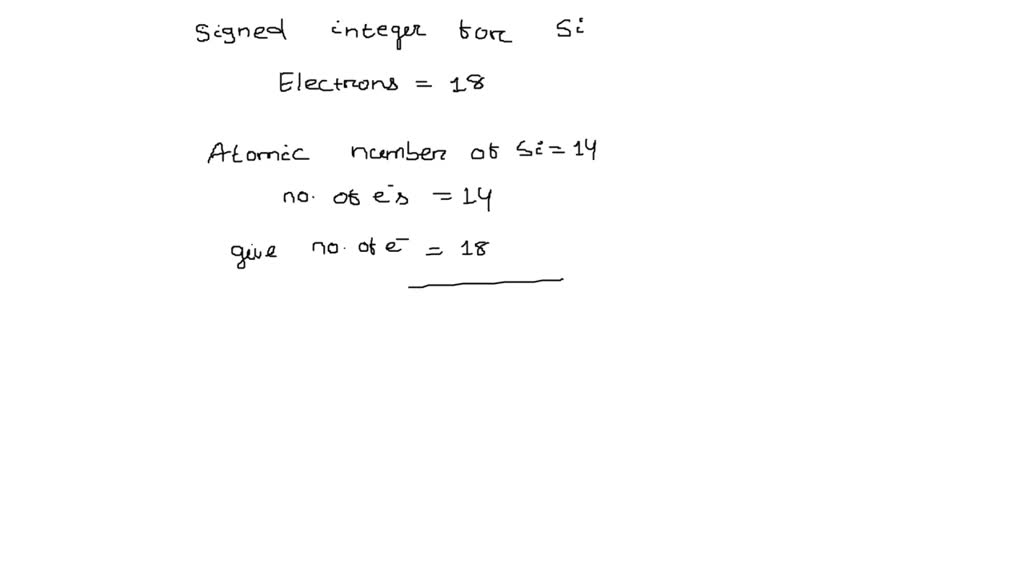 Signed integer for Si
Electrons = 18
Atomic number of Si = 14
no. of e⁻s = 14
give no. of e⁻ = 18